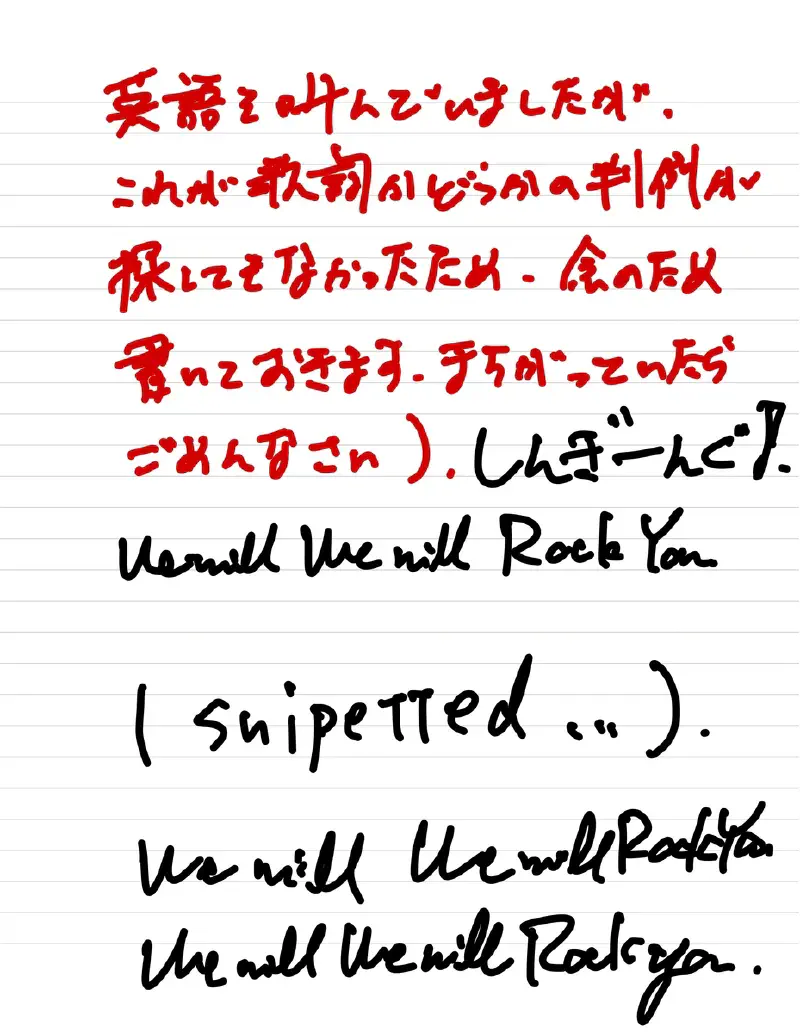 英語を叫んでいましたが.
これが歌詞かどうかの判例が
探してもなかったため. 念のため
書いておきます. まちがっていたら
ごめんなさい). しんぎーんぐ!.
We will We will Rock You
( snipetted ... ).
We will We will Rock You
We will We will Rock you.